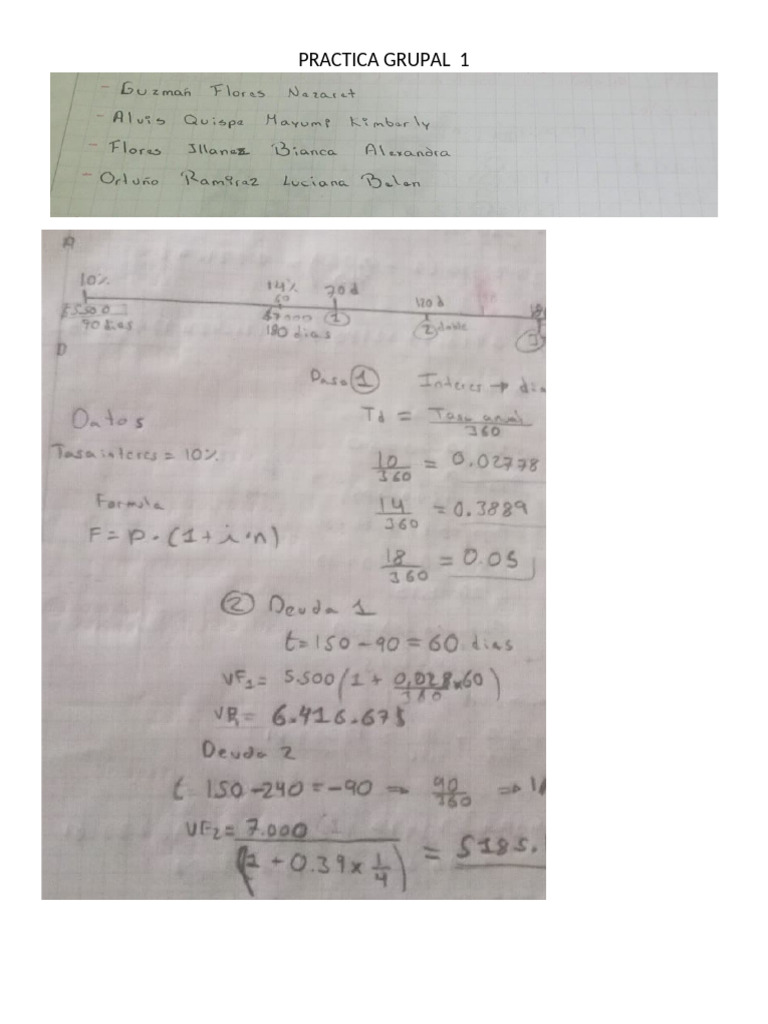 PRACTICA GRUPAL 1
- Guzmán Flores Nazaret
- Aluis Quispe Mayumi Kimberly
- Flores Illanez Bianca Alexandra
- Ortuño Ramirez Luciana Belen
10%
14%
60
70d
120d
5500
90 dias
$7000
180 dias
1
2 doble
3
D
Paso 1 Interes → dia
Datos
Td = Tasa anual / 360
Tasa interes = 10%
10/360 = 0.02778
Formula
14/360 = 0.3889
F = P · (1 + i · n)
18/360 = 0.05
2 Deuda 1
t = 150 - 90 = 60 dias
VF1 = 5.500 (1 + 0,028/360 x 60)
VP1 = 6.416.675
Deuda 2
t = 150 - 240 = -90 → 90/360 → 1/
VF2 = 7.000 / (1 + 0.39 x 1/4) = 5185.